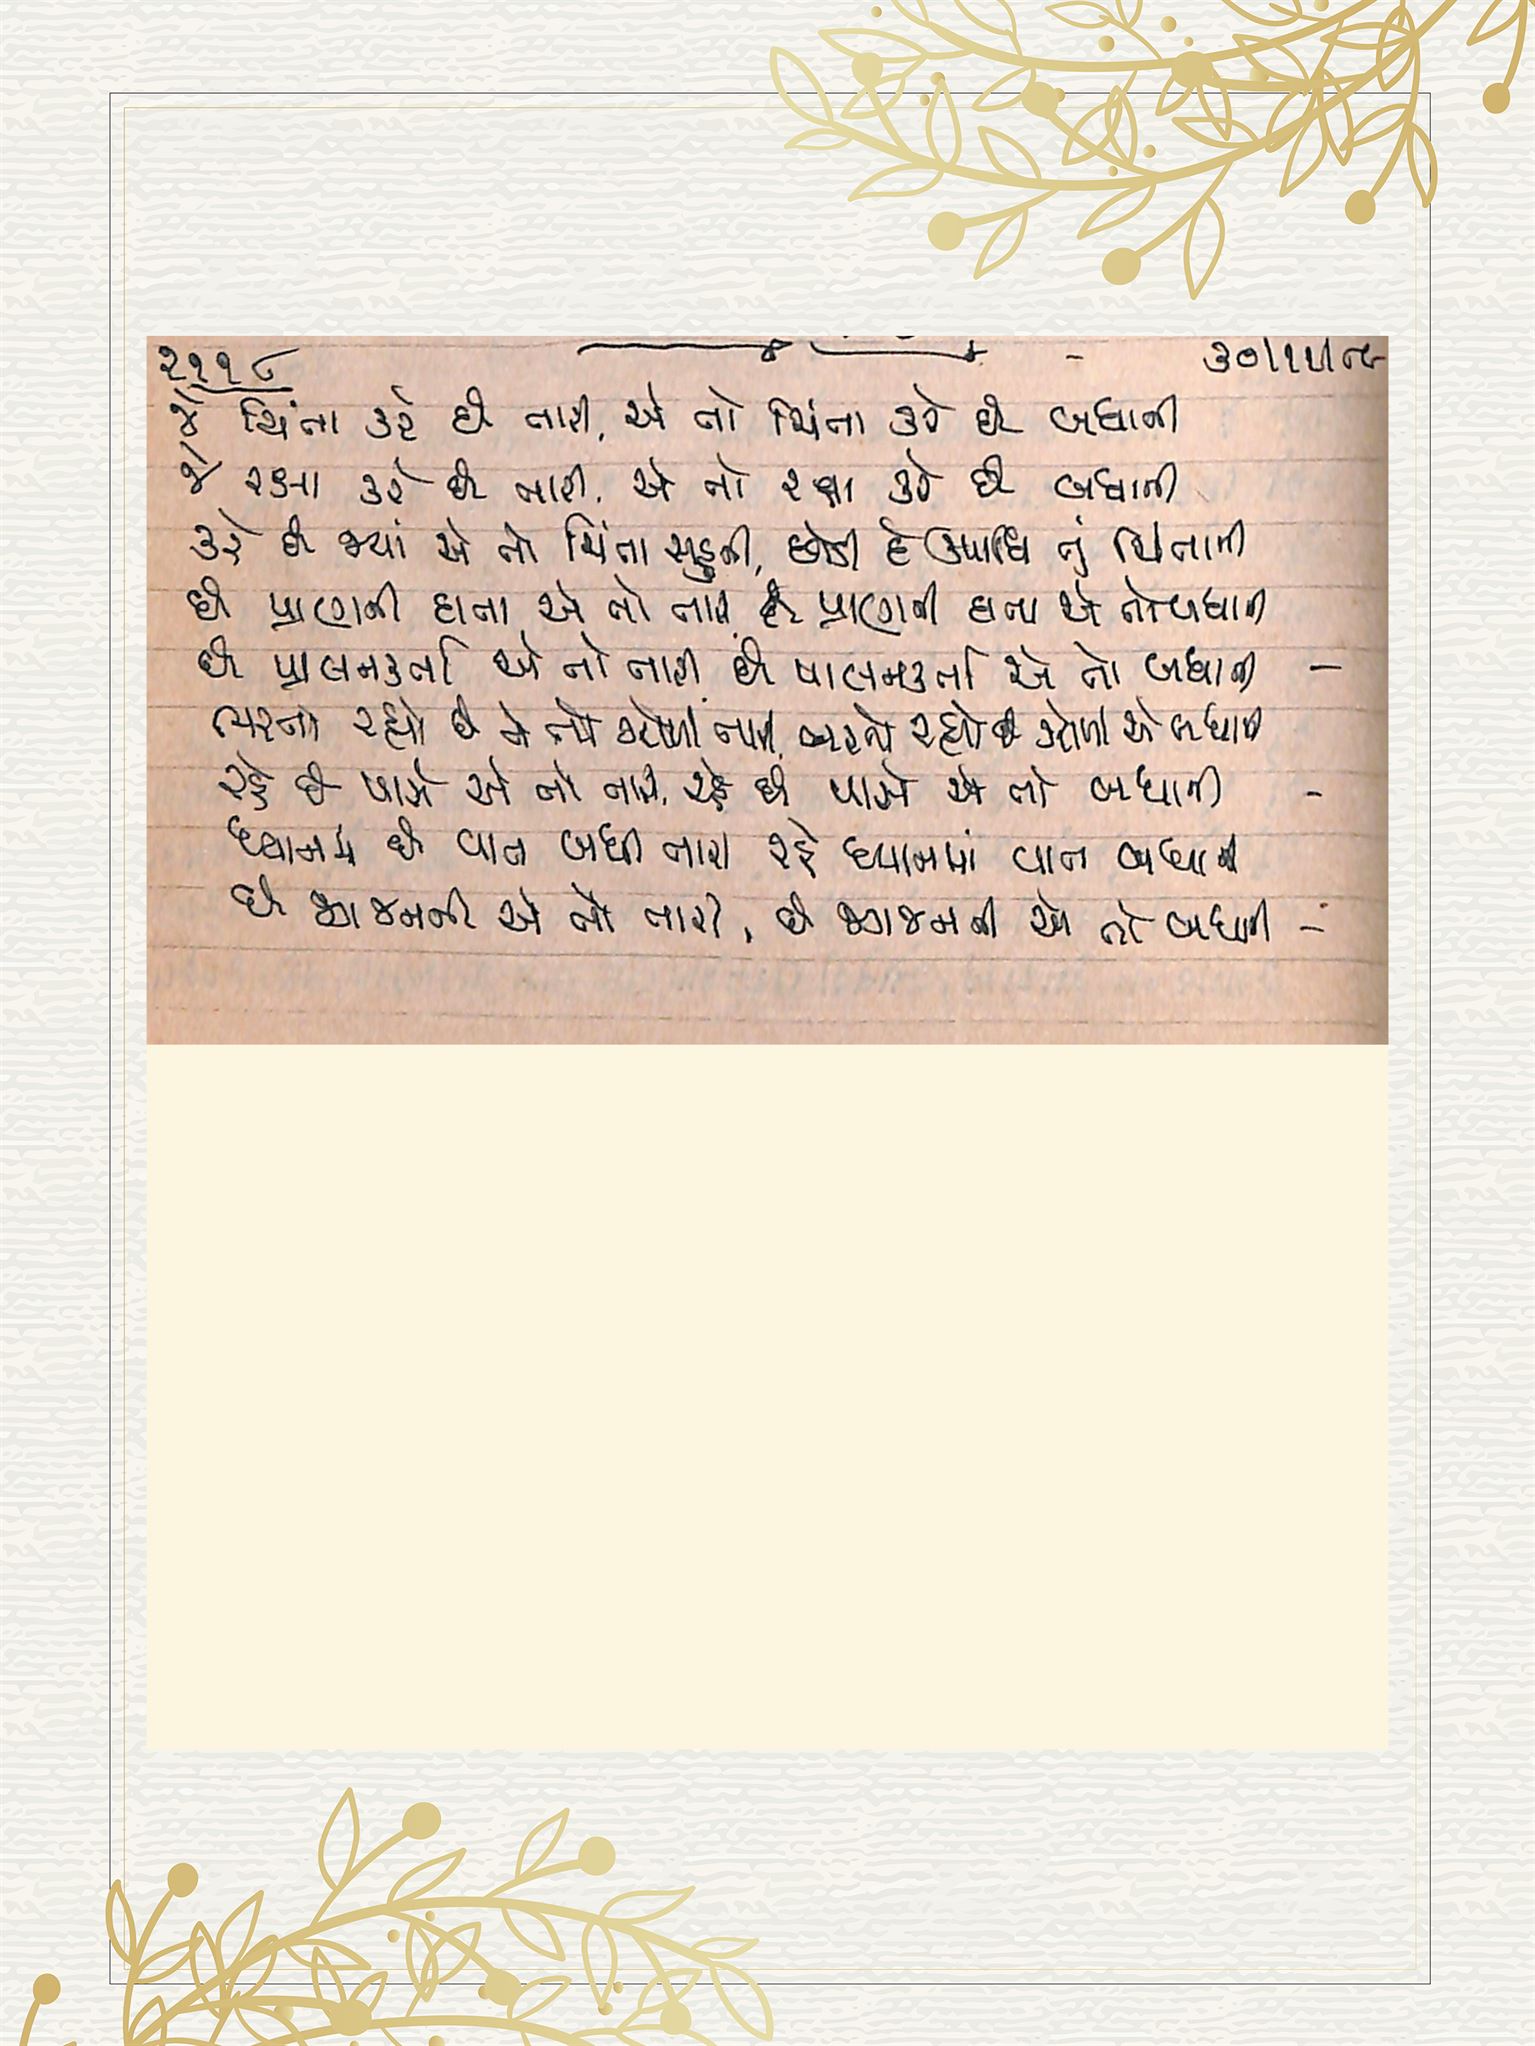 ૨૧૧૮
જે ચિંતા કરે છે તારી, એ તો ચિંતા કરે છે બધાની
જે રક્ષા કરે છે તારી, એ તો રક્ષા કરે છે બધાની
કરે છે જ્યાં એ તો ચિંતા સહુની, છોડી દે ઉપાધિ તું ચિંતાની
છે પ્રાણની દાતા એ તો તારી, છે પ્રાણની દાતા એ તો બધાની
છે પાલનકર્તા એ તો તારી, છે પાલનકર્તા એ તો બધાની -
ભરતો રહ્યો છે એ તો ઝોળી તારી, ભરતો રહ્યો છે ઝોળી એ બધાની
રહે છે પાસે એ તો તારી, રહે છે પાસે એ તો બધાની -
ધ્યાનમાં છે વાત બધી તારી રહે ધ્યાનમાં વાત બધાની
છે જગજનની એ તો તારી, છે જગજનની એ તો બધાની -